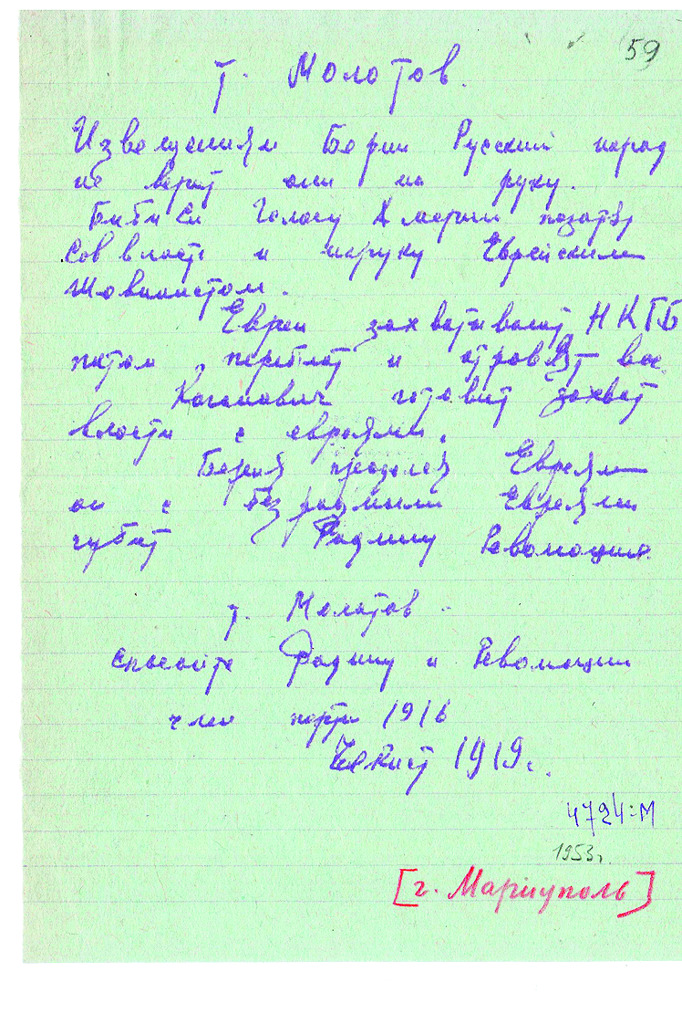 59
т. Молотов.
Извещениям Берии Русский народ
не верит они на руку.
Би би си Голосу Америки
Сов власть и наруку Еврейским
шовинистом.
Евреи захватывают НКГБ
потом перебют и отровят все
Каганович готовит захват
власти с евреями.
Берия продался Евреям
он с без родными Евреями
губит Родину Революцию.
т. Молотов
спасайте Родину и Революции
член парти 1916
Чекист 1919г.
4724:М
1953г.
[г. Мариуполь]